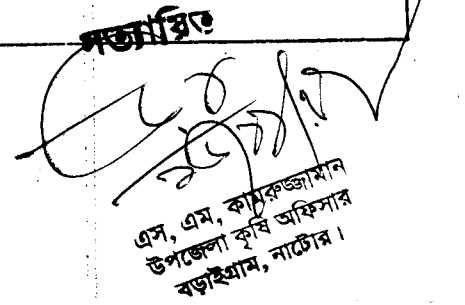 সত্যায়িত
এস, এম, কামরুজ্জামান
উপজেলা কৃষি অফিসার
বড়াইগ্রাম, নাটোর।